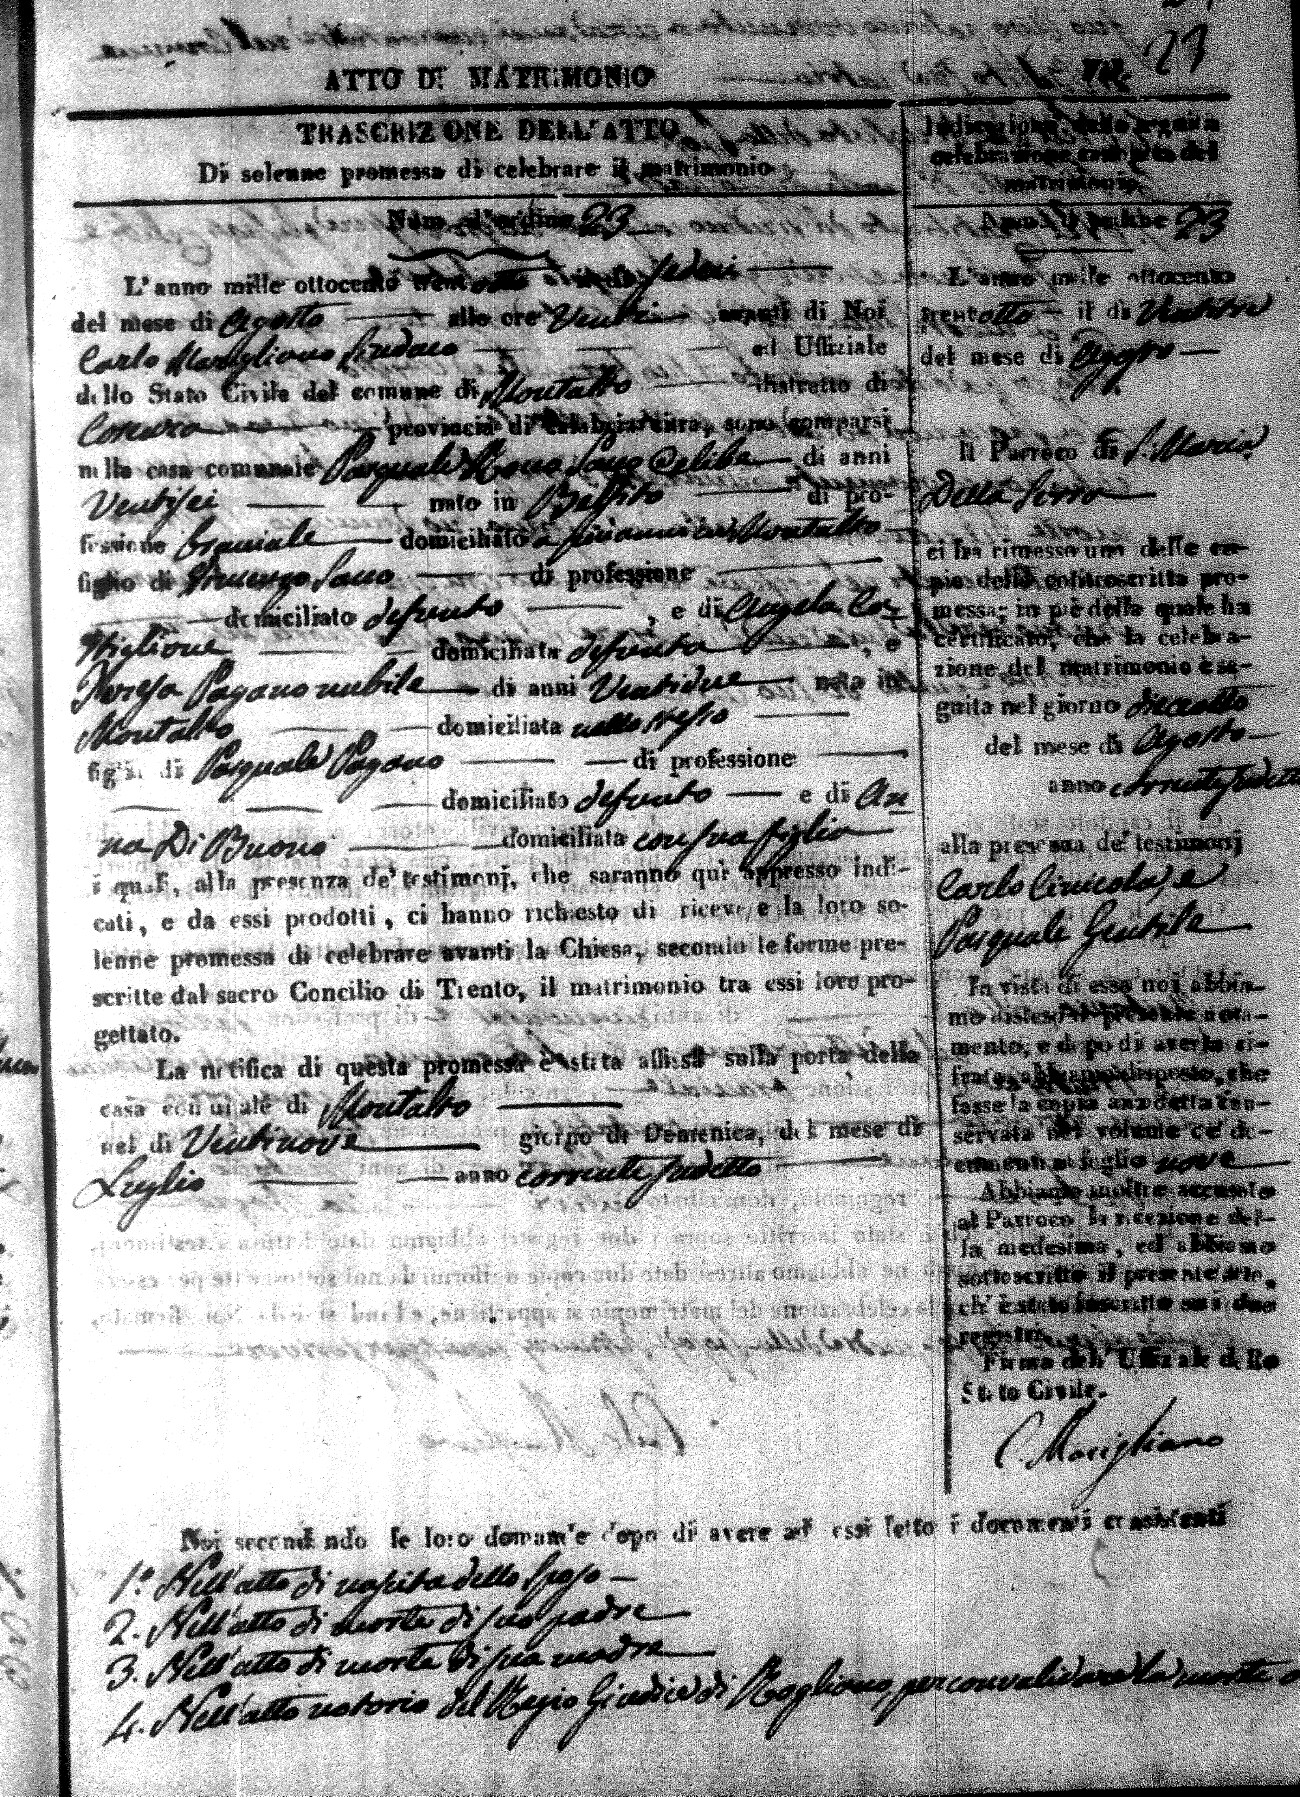 23
ATTO DI MATRIMONIO
TRASCRIZIONE DELL'ATTO
Di solenne promessa di celebrare il matrimonio
Num. d'ordine 23
L'anno mille ottocento trentotto il dì sedeci
del mese di Agosto alle ore Venti avanti di Noi
Carlo Marigliano Sindaco ed Uffiziale
dello Stato Civile del comune di Montalto distretto di
Cosenza provincia di Calabria Citra, sono comparsi
nella casa comunale Pasquale Sano Celibe di anni
Ventisei nato in Belsito di pro-
fessione domiciliato in Montalto
figlio di Vincenzo Sano di professione
domiciliato defunto, e di Angela Ca-
stiglione domiciliata defunta, e
Teresa Pagano nubile di anni Ventidue nata in
Montalto domiciliata nello stesso
figlia di Pasquale Pagano di professione
domiciliato defunto e di An
na Di Buono domiciliata con sua figlia
i quali, alla presenza de' testimonj, che saranno quì appresso indi-
cati, e da essi prodotti, ci hanno richiesto di ricevere la loro so-
lenne promessa di celebrare avanti la Chiesa, secondo le forme pre-
scritte dal sacro Concilio di Trento, il matrimonio tra essi loro pro-
gettato.
La notifica di questa promessa è stata affissa sulla porta della
casa comunale di Montalto
nel dì Ventinove giorno di Domenica, del mese di
Luglio anno corrente sudetto
Indicazione della seguita
celebrazione canonica del
matrimonio
Num. d'ordine 23
L'anno mille ottocento
trentotto il dì Ventitre
del mese di Agosto
Il Parroco di S. Maria
Della Serra
ci ha rimesso una delle co-
pie della controscritta pro-
messa; in piè della quale ha
certificato, che la celebra-
zione del matrimonio è se-
guita nel giorno dieciotto
del mese di Agosto
anno corrente sudetto
alla presenza de' testimonj
Carlo Cirucola, e
Pasquale Gentile
In vista di essa noi abbia-
mo disteso il presente nota-
mento, e dopo di averla ci-
frata, abbiamo disposto, che
fosse la copia anzidetta con-
servata nel volume de' do-
cumenti al foglio nove
Abbiamo inoltre accusato
al Parroco la ricezione del-
la medesima, ed abbiamo
sottoscritto il presente atto,
ch' è stato inscritto su i due
registri.
Firma dell' Uffiziale dello
Stato Civile.
C. Marigliano
Noi secondando le loro domande dopo di avere ad essi letto i documenti consistenti
1.° Nell'atto di nascita dello Sposo
2. Nell'atto di morte di suo padre
3. Nell'atto di morte di sua madre
4. Nell'atto notorio del Regio Giudice di Rogliano, per convalidare la morte